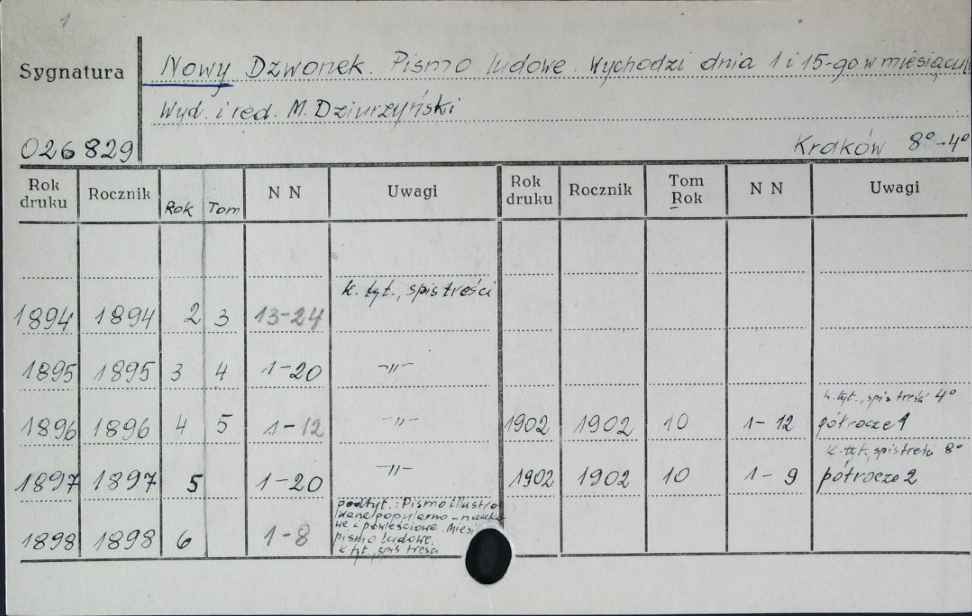 1
Sygnatura
Nowy Dzwonek. Pismo ludowe. Wychodzi dnia 1 i 15-go w miesiącu
Wyd. i red. M. Dziurzyński
026829
Kraków 8° - 4°
Rok druku Rocznik Rok Tom N N Uwagi Rok druku Rocznik Tom Rok N N Uwagi
k. tyt., spis treści
1894 1894 2 3 13-24
1895 1895 3 4 1-20 -"-
k. tyt., spis treści 4°
1896 1896 4 5 1-12 -"- 1902 1902 10 1-12 półrocze 1
k. tyt., spis treści 8°
1897 1897 5 1-20 -"- 1902 1902 10 1-9 półrocze 2
podtyt.: Pismo illustro
wane popularno-nauko
we i powieściowe. Miesi
pismo ludowe.
1898 1898 6 1-8 k. tyt., spis treści